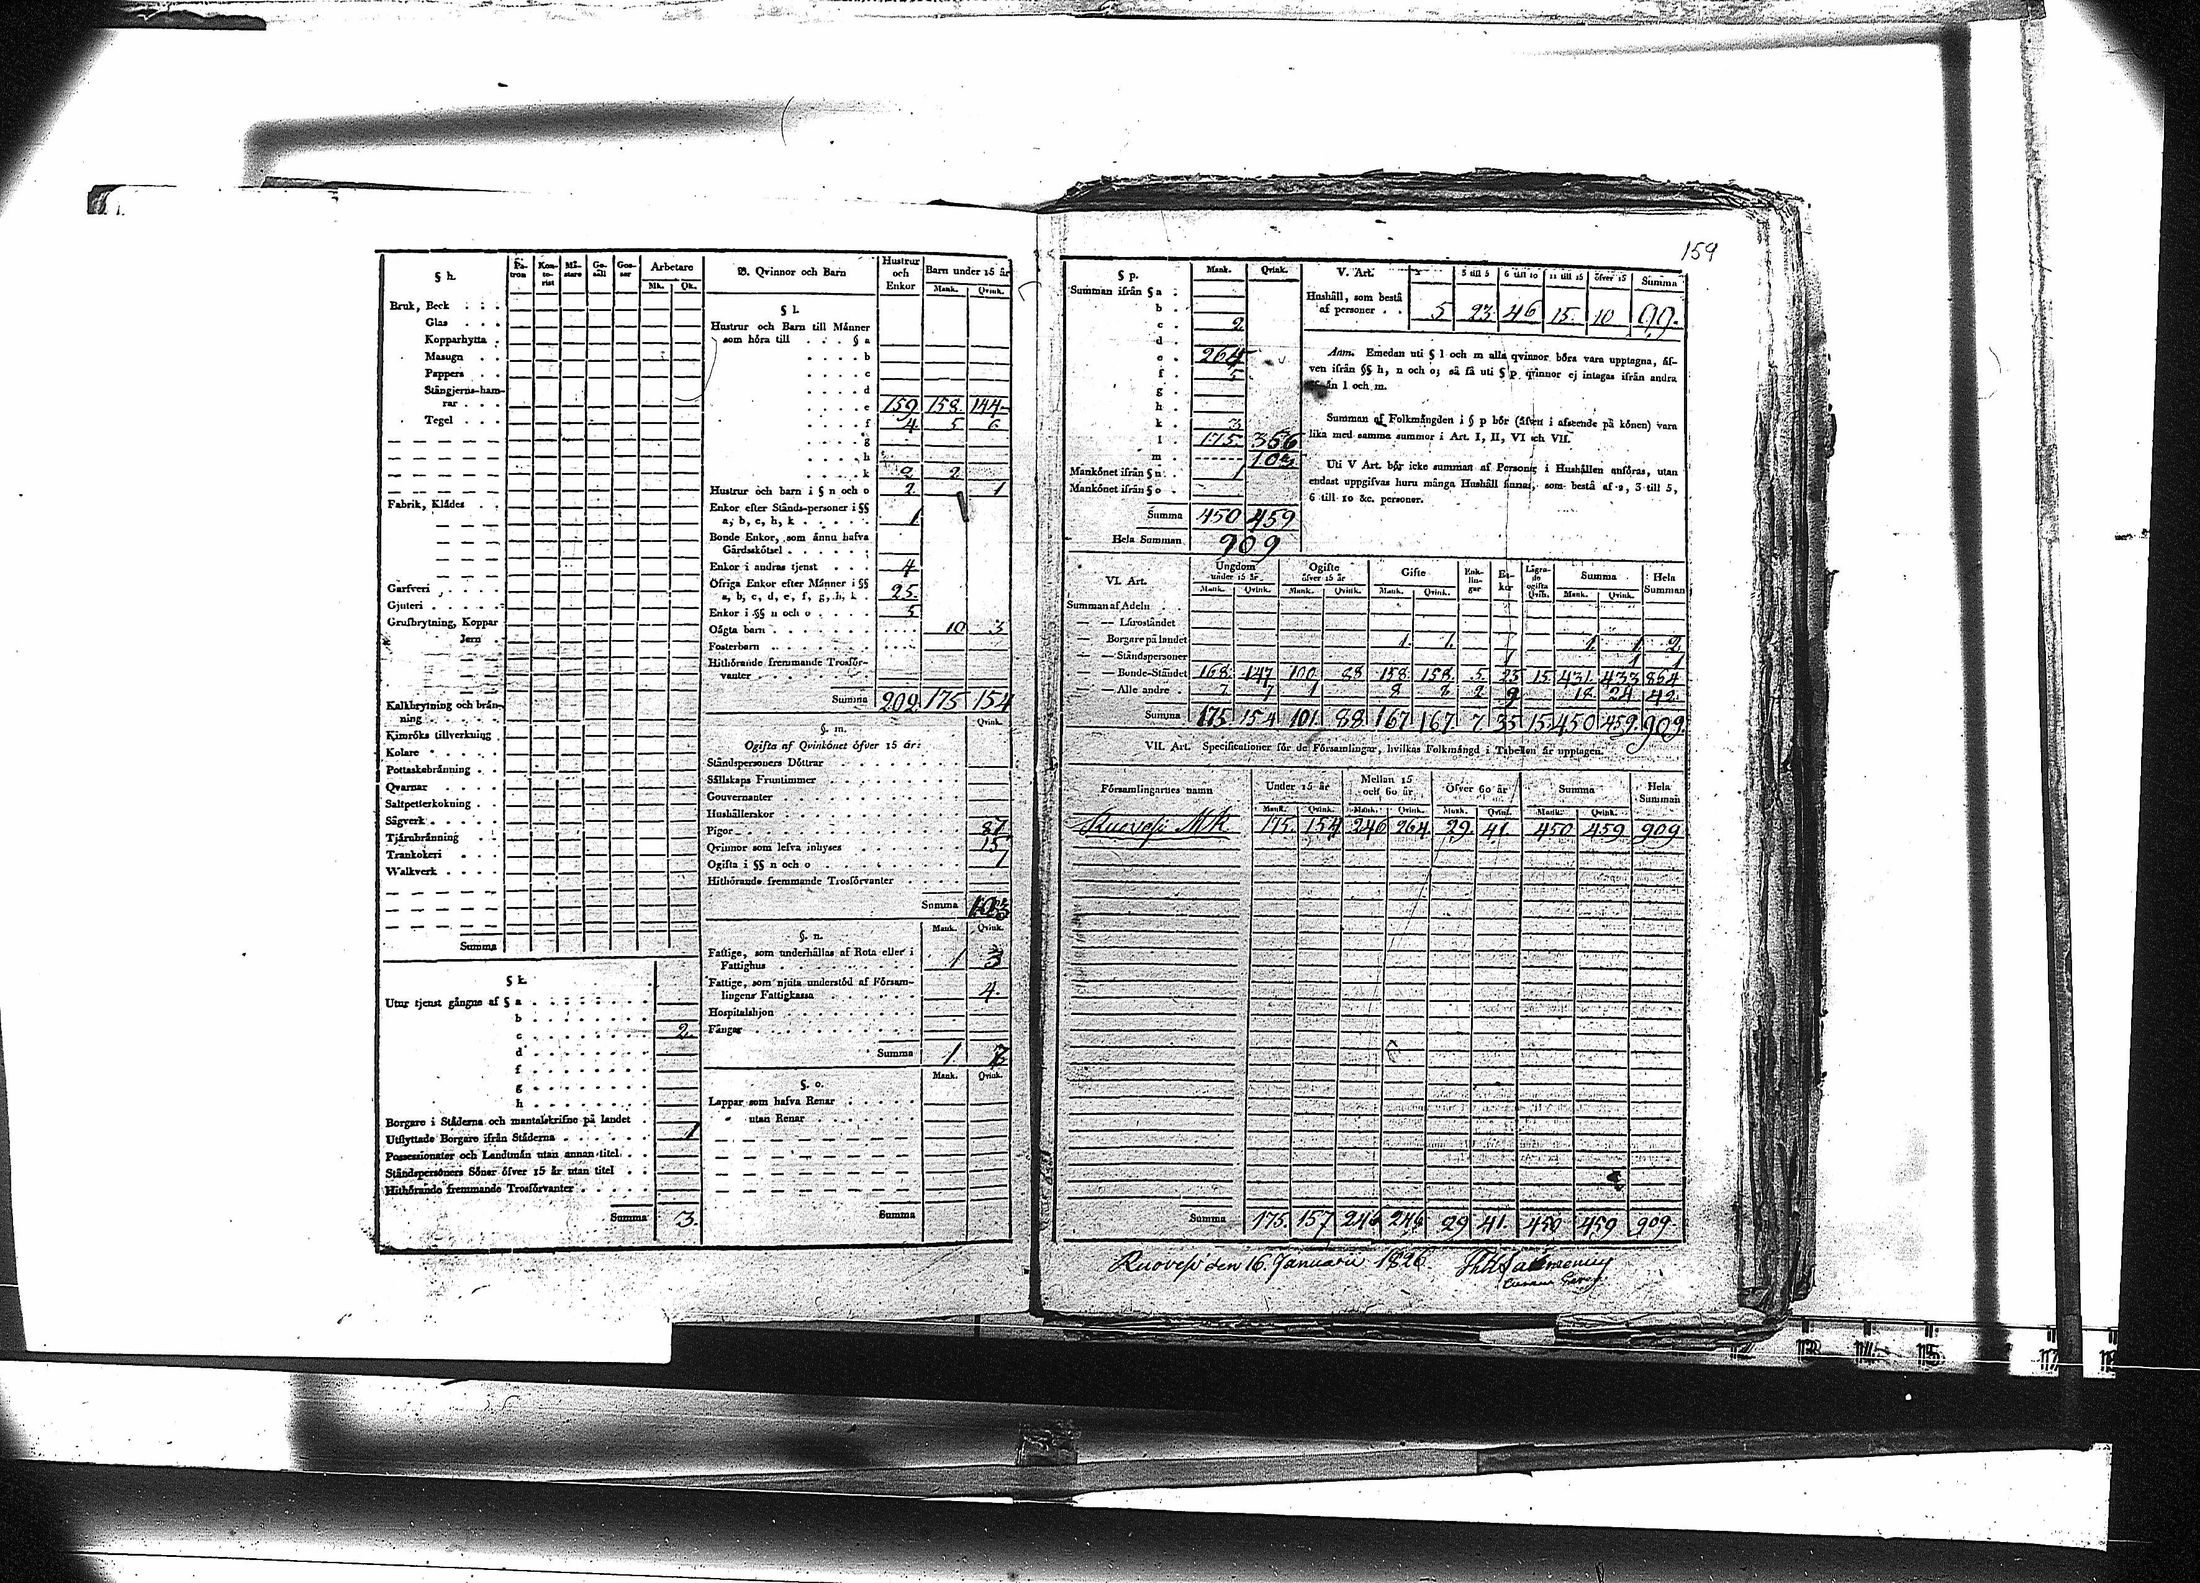 159
§ h.
Pa-
tron
Kon-
to-
rist
Mä-
stare
Ge-
säll
Gos-
sar
Arbetare
Mk. Qk.
Bruk, Beck
Glas
Kopparhytta
Masugn
Pappers
Stångjerns-ham-
rar
Tegel
Fabrik, Klädes
Garfveri
Gjuteri
Grufbrytning, Koppar
Jern
Kalkbrytning och brän-
ning
Kimröks tillverkning
Kolare
Pottaskebränning
Qvarnar
Saltpetterkokning
Sågverk
Tjärubränning
Trankokeri
Walkverk
Summa
§ k.
Utur tjenst gångne af § a
b
c 2.
d
f
g
h
Borgare i Städerna och mantalskrifne på landet
Utflyttade Borgare ifrån Städerna 1
Possessionater och Landtmän utan annan titel
Ståndspersoners Söner öfver 15 år utan titel
Hithörande fremmande Trosförvanter
Summa 3.
B. Qvinnor och Barn
Hustrur
och
Enkor
Barn under 15 år
Mank. Qvink.
§ l.
Hustrur och Barn till Männer
som höra till § a
b
c
d
e 159 158 144
f 4 5 6
g
h
k 2 2
Hustrur och barn i § n och o 2 1
Enkor efter Stånds-personer i §§
a, b, c, h, k 1
Bonde Enkor, som ännu hafva
Gårdsskötsel
Enkor i andras tjenst 4
Öfriga Enkor efter Männer i §§
a, b, c, d, e, f, g, h, k 25
Enkor i §§ n och o 5
Oägta barn 10 3
Fosterbarn
Hithörande fremmande Trosför-
vanter
Summa 202 175 154
§. m.
Qvink.
Ogifta af Qvinkönet öfver 15 år:
Ståndspersoners Döttrar
Sällskaps Fruntimmer
Gouvernanter
Hushållerskor
Pigor 87
Qvinnor som lefva inhyses 15
Ogifta i §§ n och o 1
Hithörande fremmande Trosförvanter
Summa 103
§. n.
Mank. Qvink.
Fattige, som underhållas af Rota eller i
Fattighus 1 3
Fattige, som njuta understöd af Försam-
lingens Fattigkassa 4.
Hospitalshjon
Fångar
Summa 1 7
§. o.
Mank. Qvink.
Lappar som hafva Renar
" utan Renar
Summa
§ p.
Mank. Qvink.
Summan ifrån § a
b
c 2
d
e 264
f 5
g
h
k 3
l 175. 356
m 103
Mankönet ifrån § n 1
Mankönet ifrån § o
Summa 450 459
Hela Summan 909
V. Art.
3 till 5 6 till 10 11 till 15 öfver 15 Summa
Hushåll, som bestå
af personer 5 23 46 15. 10 99.
Anm. Emedan uti § l och m alla qvinnor böra vara upptagna, äf-
ven ifrån §§ h, n och o; så få uti § p qvinnor ej intagas ifrån andra
än l och m.
Summan af Folkmängden i § p bör (äfven i afseende på könen) vara
lika med samma summor i Art. I, II, VI och VII.
Uti V Art. bör icke summan af Personer i Hushållen anföras, utan
endast uppgifvas huru många Hushåll finnas, som bestå af 2, 3 till 5,
6 till 10 &c. personer.
VI. Art.
Ungdom
under 15 år
Ogifte
öfver 15 år
Gifte
Enk-
lin-
gar
En-
kor
Lägra-
de
ogifta
Qvin.
Summa
Hela
Summan
Mank. Qvink. Mank. Qvink. Mank. Qvink. Mank. Qvink.
Summan af Adeln
— — Läroståndet
— Borgare på landet 1 1. 1 1 2
— — Ståndspersoner 1 1 1
— — Bonde-Ståndet 168 147 100 88 158 158 5 25 15 431 433 864
— — Alle andre 7 7 1 8 8 2 9 18 24 42
Summa 175 154 101 88 167 167 7 35 15 450 459. 909.
VII. Art. Specificationer för de Församlingar, hvilkas Folkmängd i Tabellen är upptagen.
Församlingarnes namn
Under 15 år
Mellan 15
och 60 år
Öfver 60 år
Summa
Hela
Summan
Mank. Qvink. Mank. Qvink. Mank. Qvink. Mank. Qvink.
Ruovesi MK 175. 154 246 264 29. 41. 450 459 909
Summa 175. 157 246 29 41. 450 459 909
Ruovesi den 16. Januarii 1826.